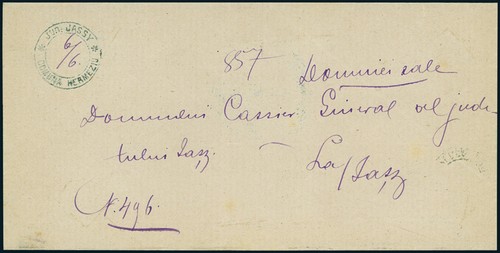 * JUD. JASSY *
COMUNA HERMEZIU
6/6.
857
Domniei sale
Domnului Cassier General al jude-
tului Iassy.
La Iassy
N. 496.